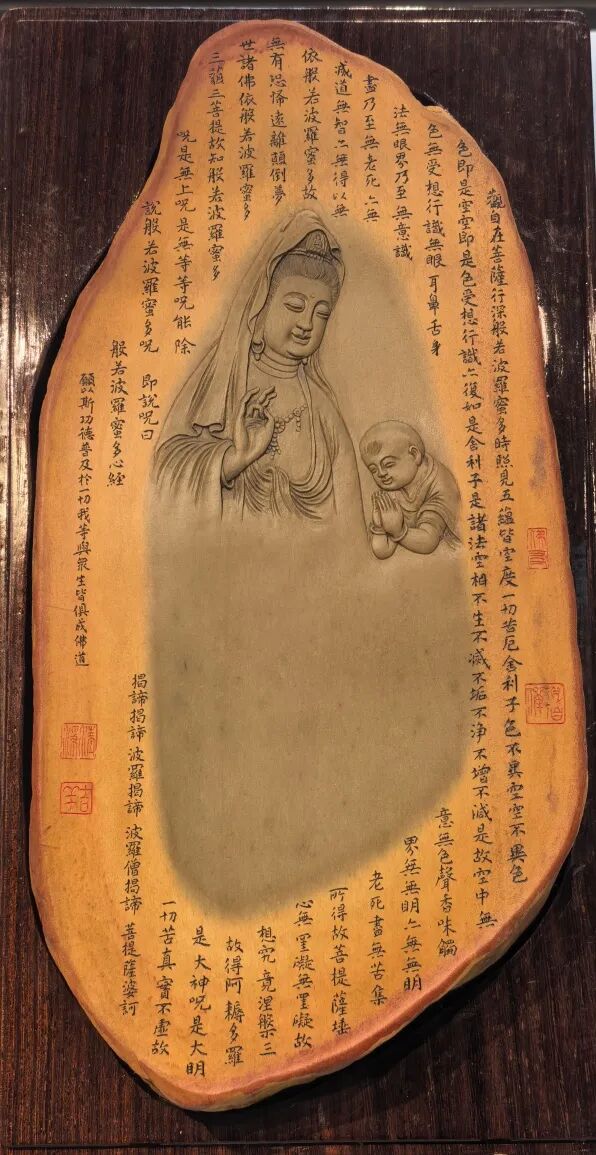 觀自在菩薩行深般若波羅蜜多時照見五蘊皆空度一切苦厄舍利子色不異空空不異色
色即是空空即是色受想行識亦復如是舍利子是諸法空相不生不滅不垢不净不增不減是故空中無
色無受想行識無眼 耳鼻舌身
意無色聲香味觸
法無眼界乃至 無意識
界無無明亦無無明
盡乃至無老死 亦無
老死盡無苦集
滅道無智亦無得以無
所得故菩提薩埵
依般若波羅蜜多故
心無罣礙無罣礙故
無有恐怖遠離顛倒夢
想究竟涅槃三
世諸佛依般若波羅蜜多
故得阿耨多羅
三藐三菩提故知般若波羅蜜多
是大神呪是大明
呪是無上呪是無等等呪能除
一切苦真實不虛故
說般若波羅蜜多呪 即說呪曰
揭諦揭諦 波羅揭諦 波羅僧揭諦 菩提薩婆訶
般若波羅蜜多心經
願以斯功德普及於一切我等與眾生皆俱成佛道